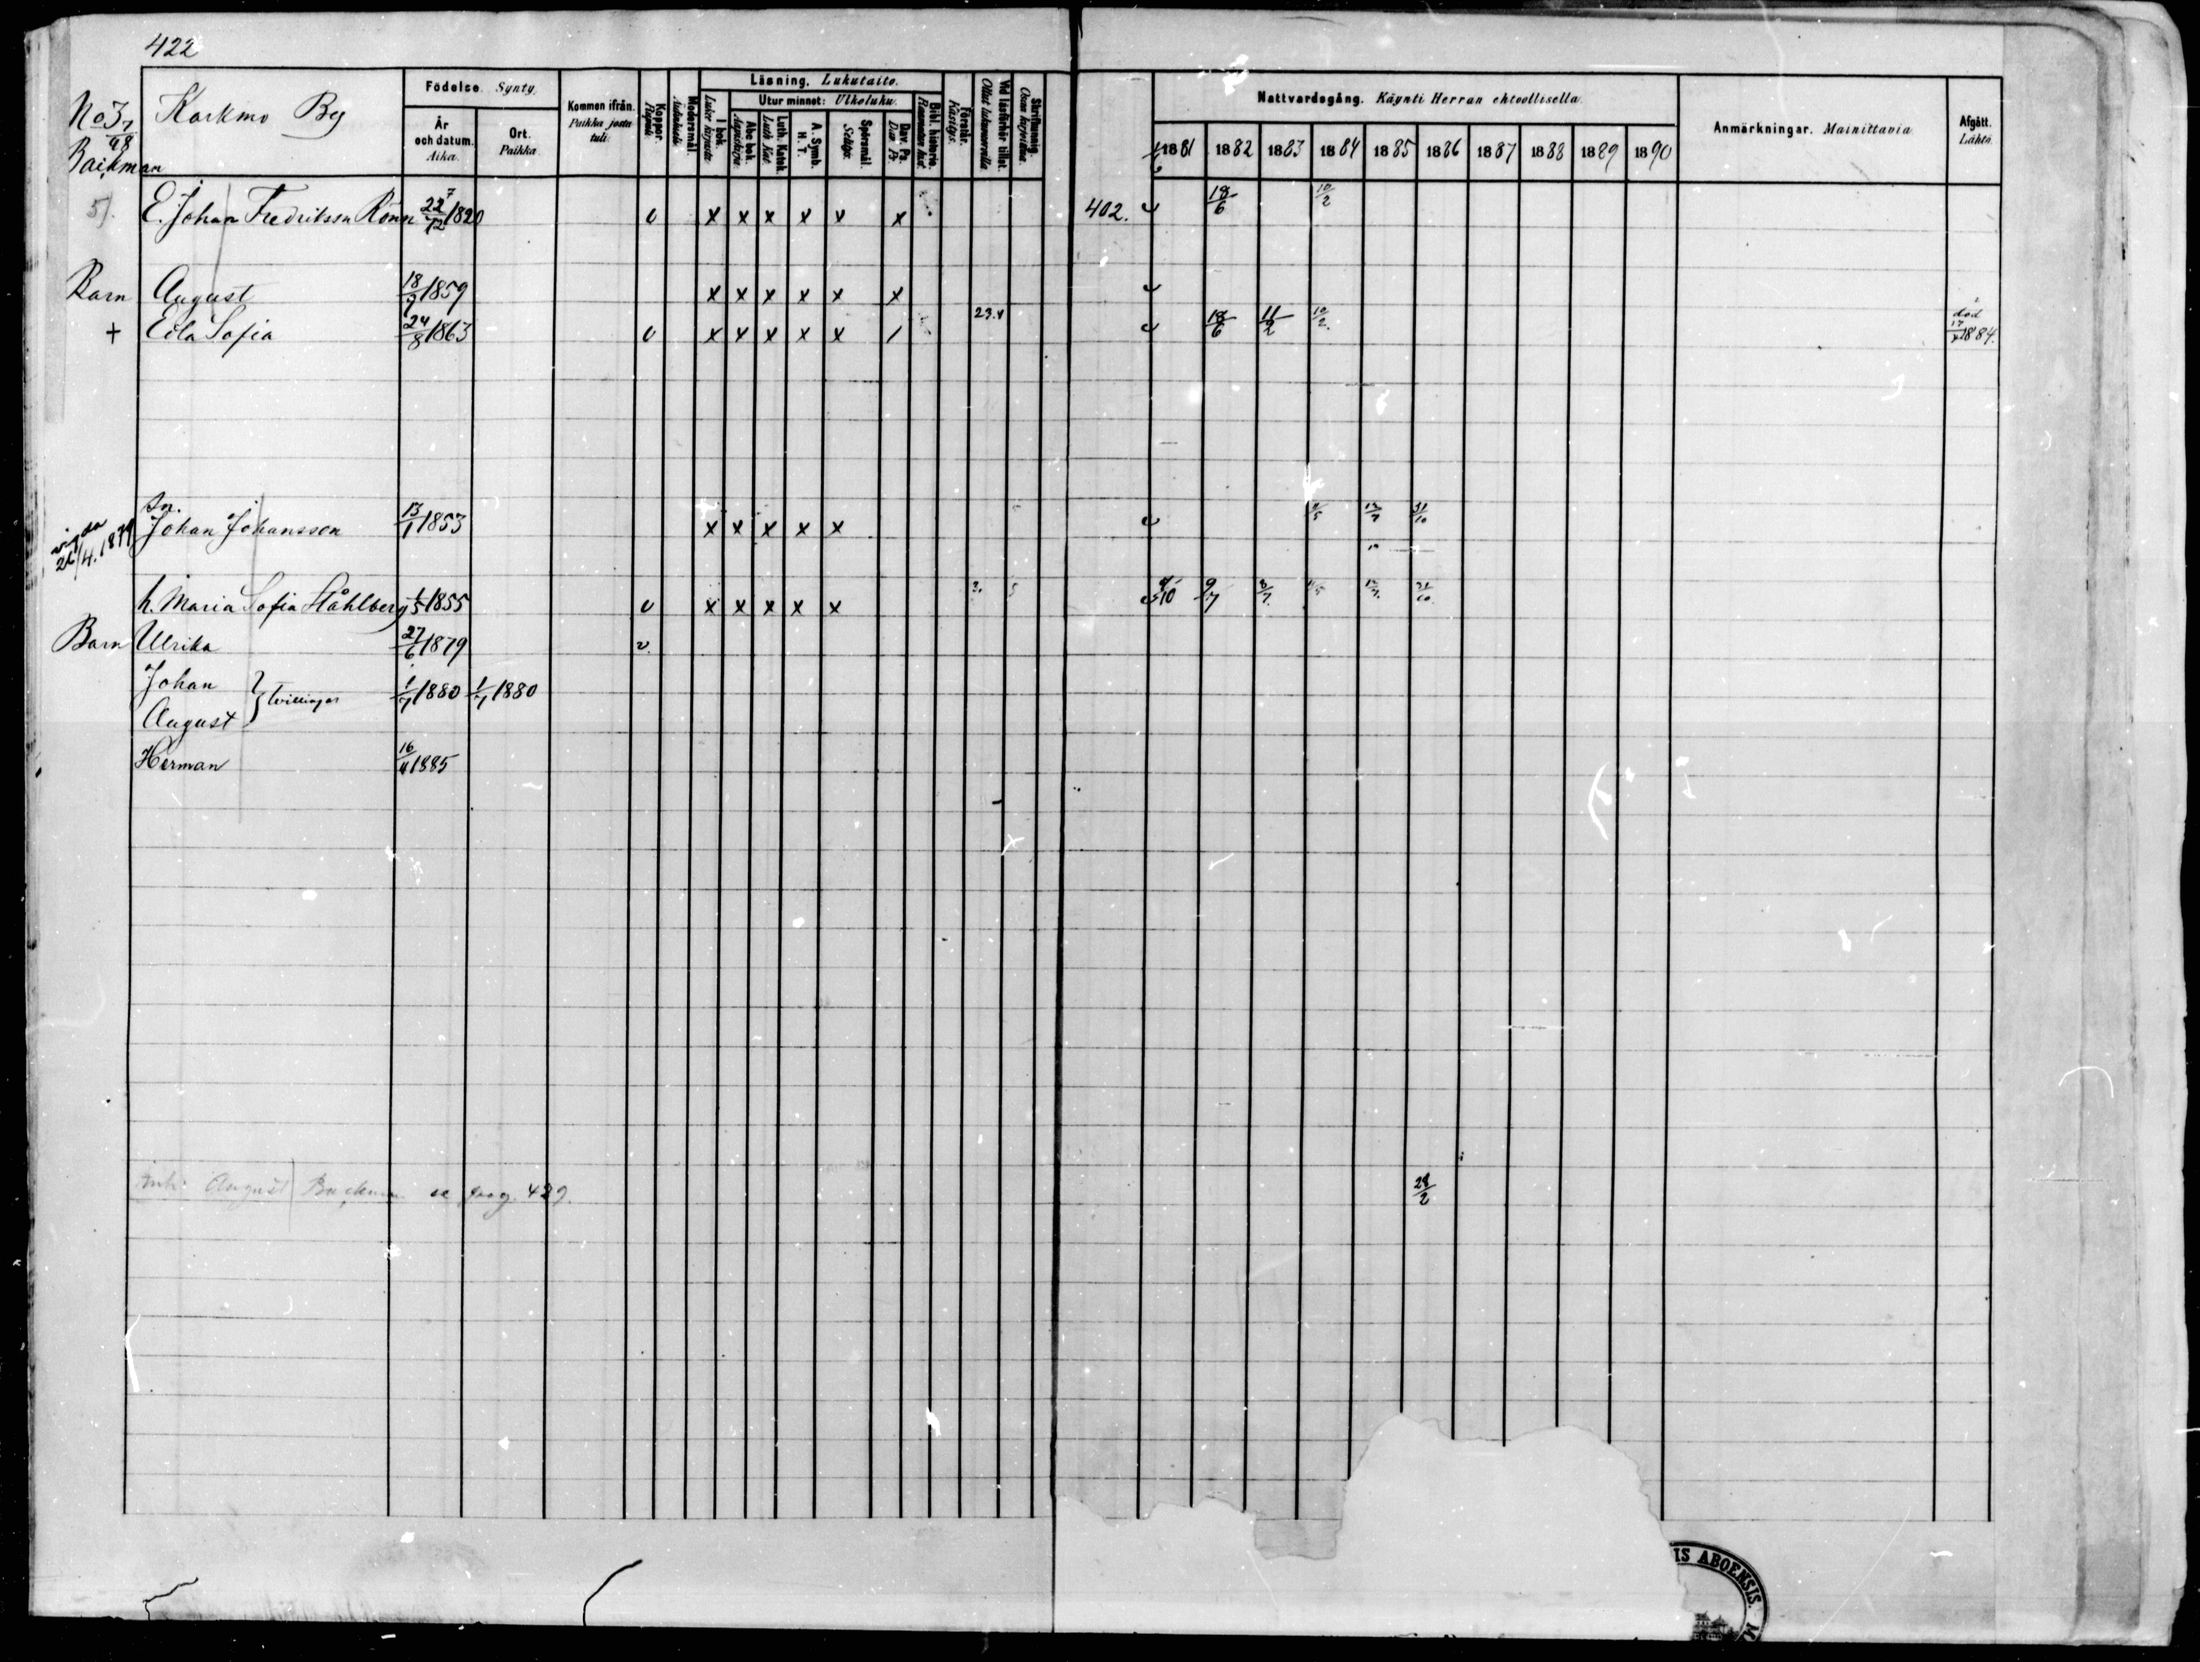 422
No 3 7/48 Karkmo By
Backman
Födelse. Synty.
År och datum. Aika.
Ort. Paikka.
Kommen ifrån. Paikka josta tuli.
Koppor. Rupuli.
Modersmål. Äidinkieli.
Läsning. Lukutaito.
I bok. Lukee kirjasta.
Utur minnet: Ulkoluku.
Abc bok. Aapiskirja.
Luth. Katek. Luth. Kat.
A. Symb. H. T.
Spörsmål. Selitys.
Dav. Ps. Dav. Ps.
Bibl. historie. Raamatun hist.
Förstår. Käsitys.
Vid läsförhör tillst. Ollut lukuvuorolla
Skrifkunnig. Osaa kirjoittaa.
Nattvardsgång. Käynti Herran ehtoollisella.
1881 1882 1883 1884 1885 1886 1887 1888 1889 1890
Anmärkningar. Mainittavia
Afgått. Lähtö.
5). E. Johan Fredriksson Rönn 22/12 1820 v x x x x x x 402. 18/6 10/2
Barn August 18/9 1859 x x x x x x
+ Eda Sofia 24/8 1863 v x x x x x / 23. 18/6 11/2 10/2 död 1884.
vigda 26/4. 1879
Sn.
Johan Johansson 13/1 1853 x x x x x 31/10
h. Maria Sofia Ståhlberg 1/5 1855 v x x x x x 9/7 8/7 31/10
Barn Ulrika 27/6 1879 v.
Johan } Tvillingar 1/7 1880 1/7 1880
August
Herman 16/4 1885
August Backman se pag. 429. 28/2
IS ABOENSIS. M